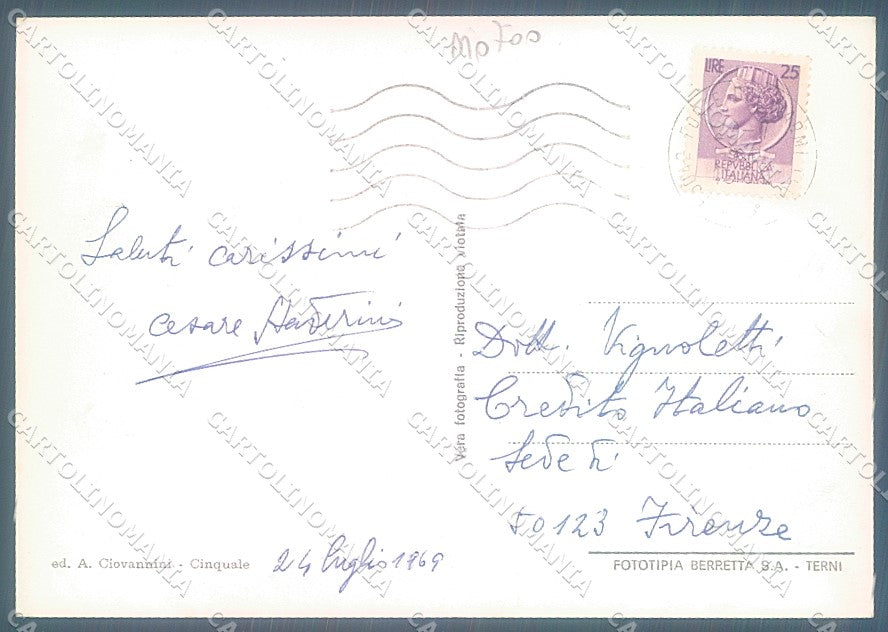 MP700
LIRE 25
REPVBBLICA
ITALIANA
Saluti carissimi
Cesare
Dott. Vignoletti
Credito Italiano
Sede di
50123 Firenze
24 luglio 1969
Vera fotografia - Riproduzione vietata
ed. A. Giovannini - Cinquale
FOTOTIPIA BERRETTA S.A. - TERNI
CARTOLINOMANIA